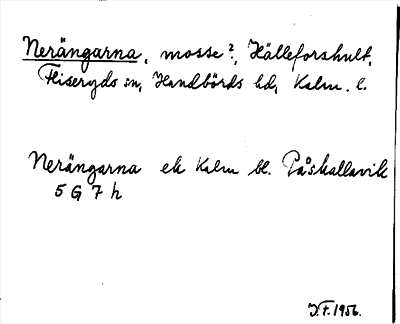 Nerängarna, mosse?, Hälleforshult,
Fliseryds sn, Handbörds hd, Kalm. l.
Nerängarna ek Kalm bl. Påskallavik
5 G 7 h
J.F. 1956.